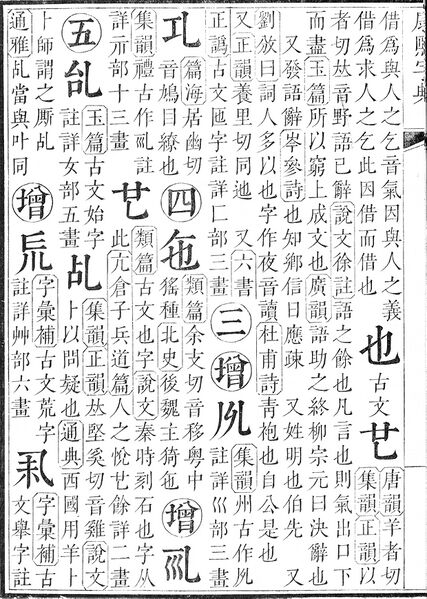 康熙字典
借為與人之乞音氣因與人之義
借為求人之乞此因借而借也
也
古文
唐韻羊者切
集韻正韻以
者切𠀤音野語已辭說文徐註語之餘也凡言也則氣出口下
而盡玉篇所以窮上成文也廣韻語助之終柳宗元曰決辭也
又發語辭岑參詩也知鄉信日應疎 又姓明也伯先 又
劉攽曰詞人多以也字作夜音讀杜甫詩靑袍也自公是也
又正韻養里切同迆 又六書
正譌古文匜字註詳匚部三畫
三
增
集韻州古作
註詳巛部三畫
篇海居幽切
音鳩曰繚也
四
㐌
類篇余支切音移粵中
猺種北史後魏主猗㐌
增
集韻禮古作 註
詳示部十三畫
類篇古文也字說文秦時刻石也字从
此亢倉子兵道篇人之悅 餘詳二畫
五
玉篇古文始字
註詳女部五畫
乩
集韻正韻𠀤堅奚切音雞說文
卜以問疑也通典西國用羊卜
卜師謂之厮乩
通雅乩當與叶同
增
字彙補古文荒字
註詳艸部六畫
字彙補古
文 字註